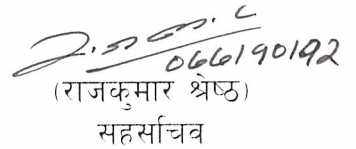 066190192
(राजकुमार श्रेष्ठ)
सहसचिव